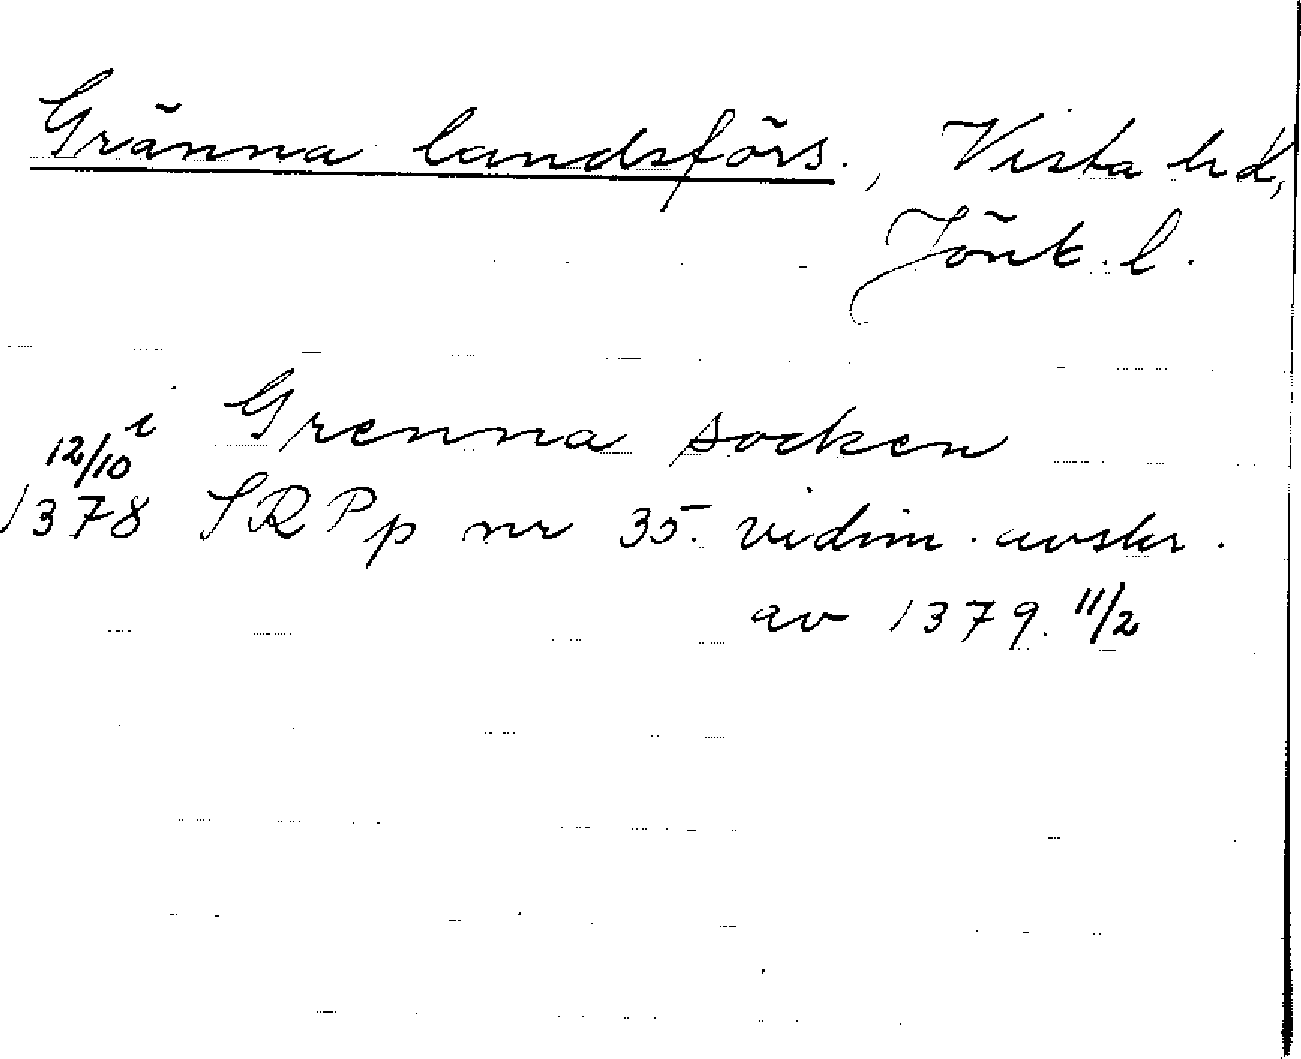 Gränna landsförs., Vista hd,
Jönk. l.
i Grenna socken
12/10
1378 SRPp nr 35. vidim. avskr.
av 1379. 11/2